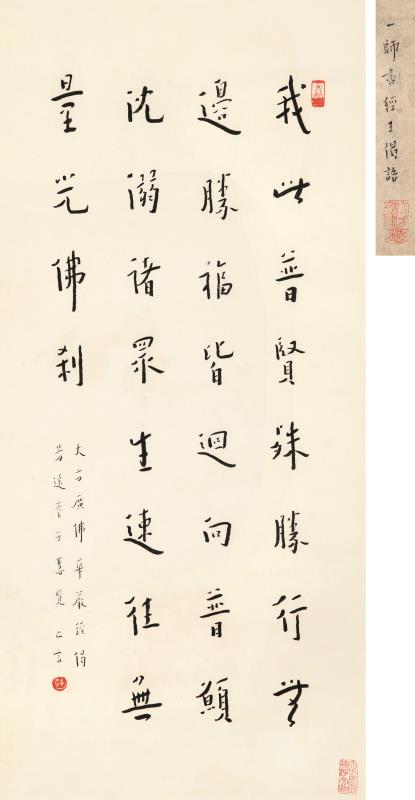 一師書經王偈語
我此普賢殊勝行無
邊勝福皆迴向普願
沈溺諸眾生速往無
量光佛刹
大方廣佛華嚴經偈